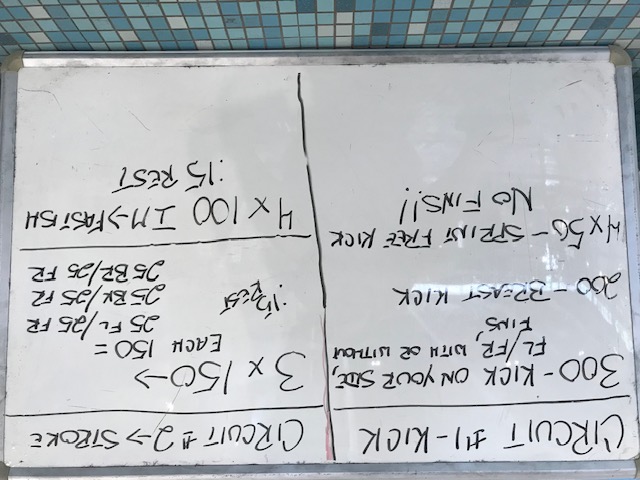 CIRCUIT #1-KICK
300-KICK ON YOUR SIDE,
FL/FR, WITH OR WITHOUT
FINS
200-BREAST KICK
4x50-SPRINT FREE KICK
NO FINS!!
CIRCUIT #2→STROKE
3 x 150→
EACH 150=
25 FL/25 FR
:15 REST
25 BK/25 FR
25 BR/25 FR
4 x 100 IM→FASTISH
:15 REST